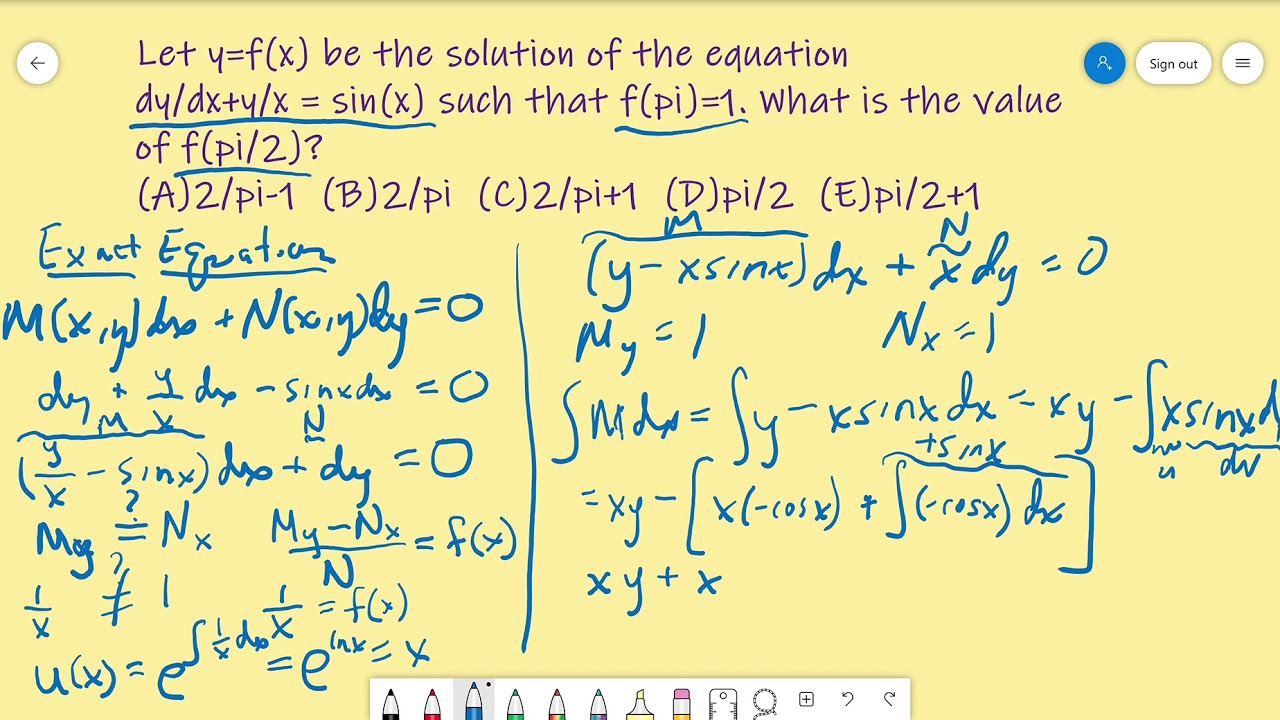 Let y=f(x) be the solution of the equation
dy/dx+y/x = sin(x) such that f(pi)=1. What is the value
of f(pi/2)?
(A)2/pi-1 (B)2/pi (C)2/pi+1 (D)pi/2 (E)pi/2+1
Sign out
Exact Equation
M(x,y)dx + N(x,y)dy = 0
dy + y/x dx - sinxdx = 0
M N
(y/x - sinx)dx + dy = 0
My ?= Nx (My - Nx)/N = f(x)
1/x ?≠ 1 1/x = f(x)
u(x) = e^∫1/x dx = e^lnx = x
M N
(y - xsinx)dx + xdy = 0
My = 1 Nx = 1
∫Mdx = ∫y - xsinxdx = xy - ∫xsinxd
u dv
+sinx
= xy - [x(-cosx) + ∫(-cosx)dx]
xy + x